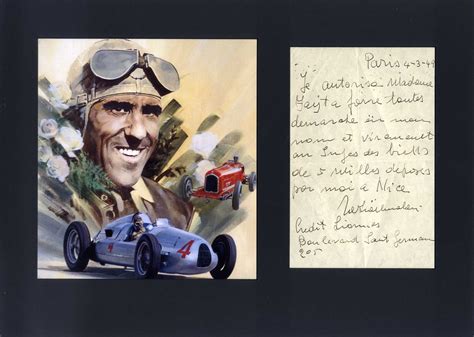 Paris 4-3-49
Je autorisa Madame
a ferre toutes
demarche en mon
nom et virement
au Sujes des billts
de 5 milles deposes
par moi a Nice
Credit Lionnes
Boulevard Saint German
205
4
4